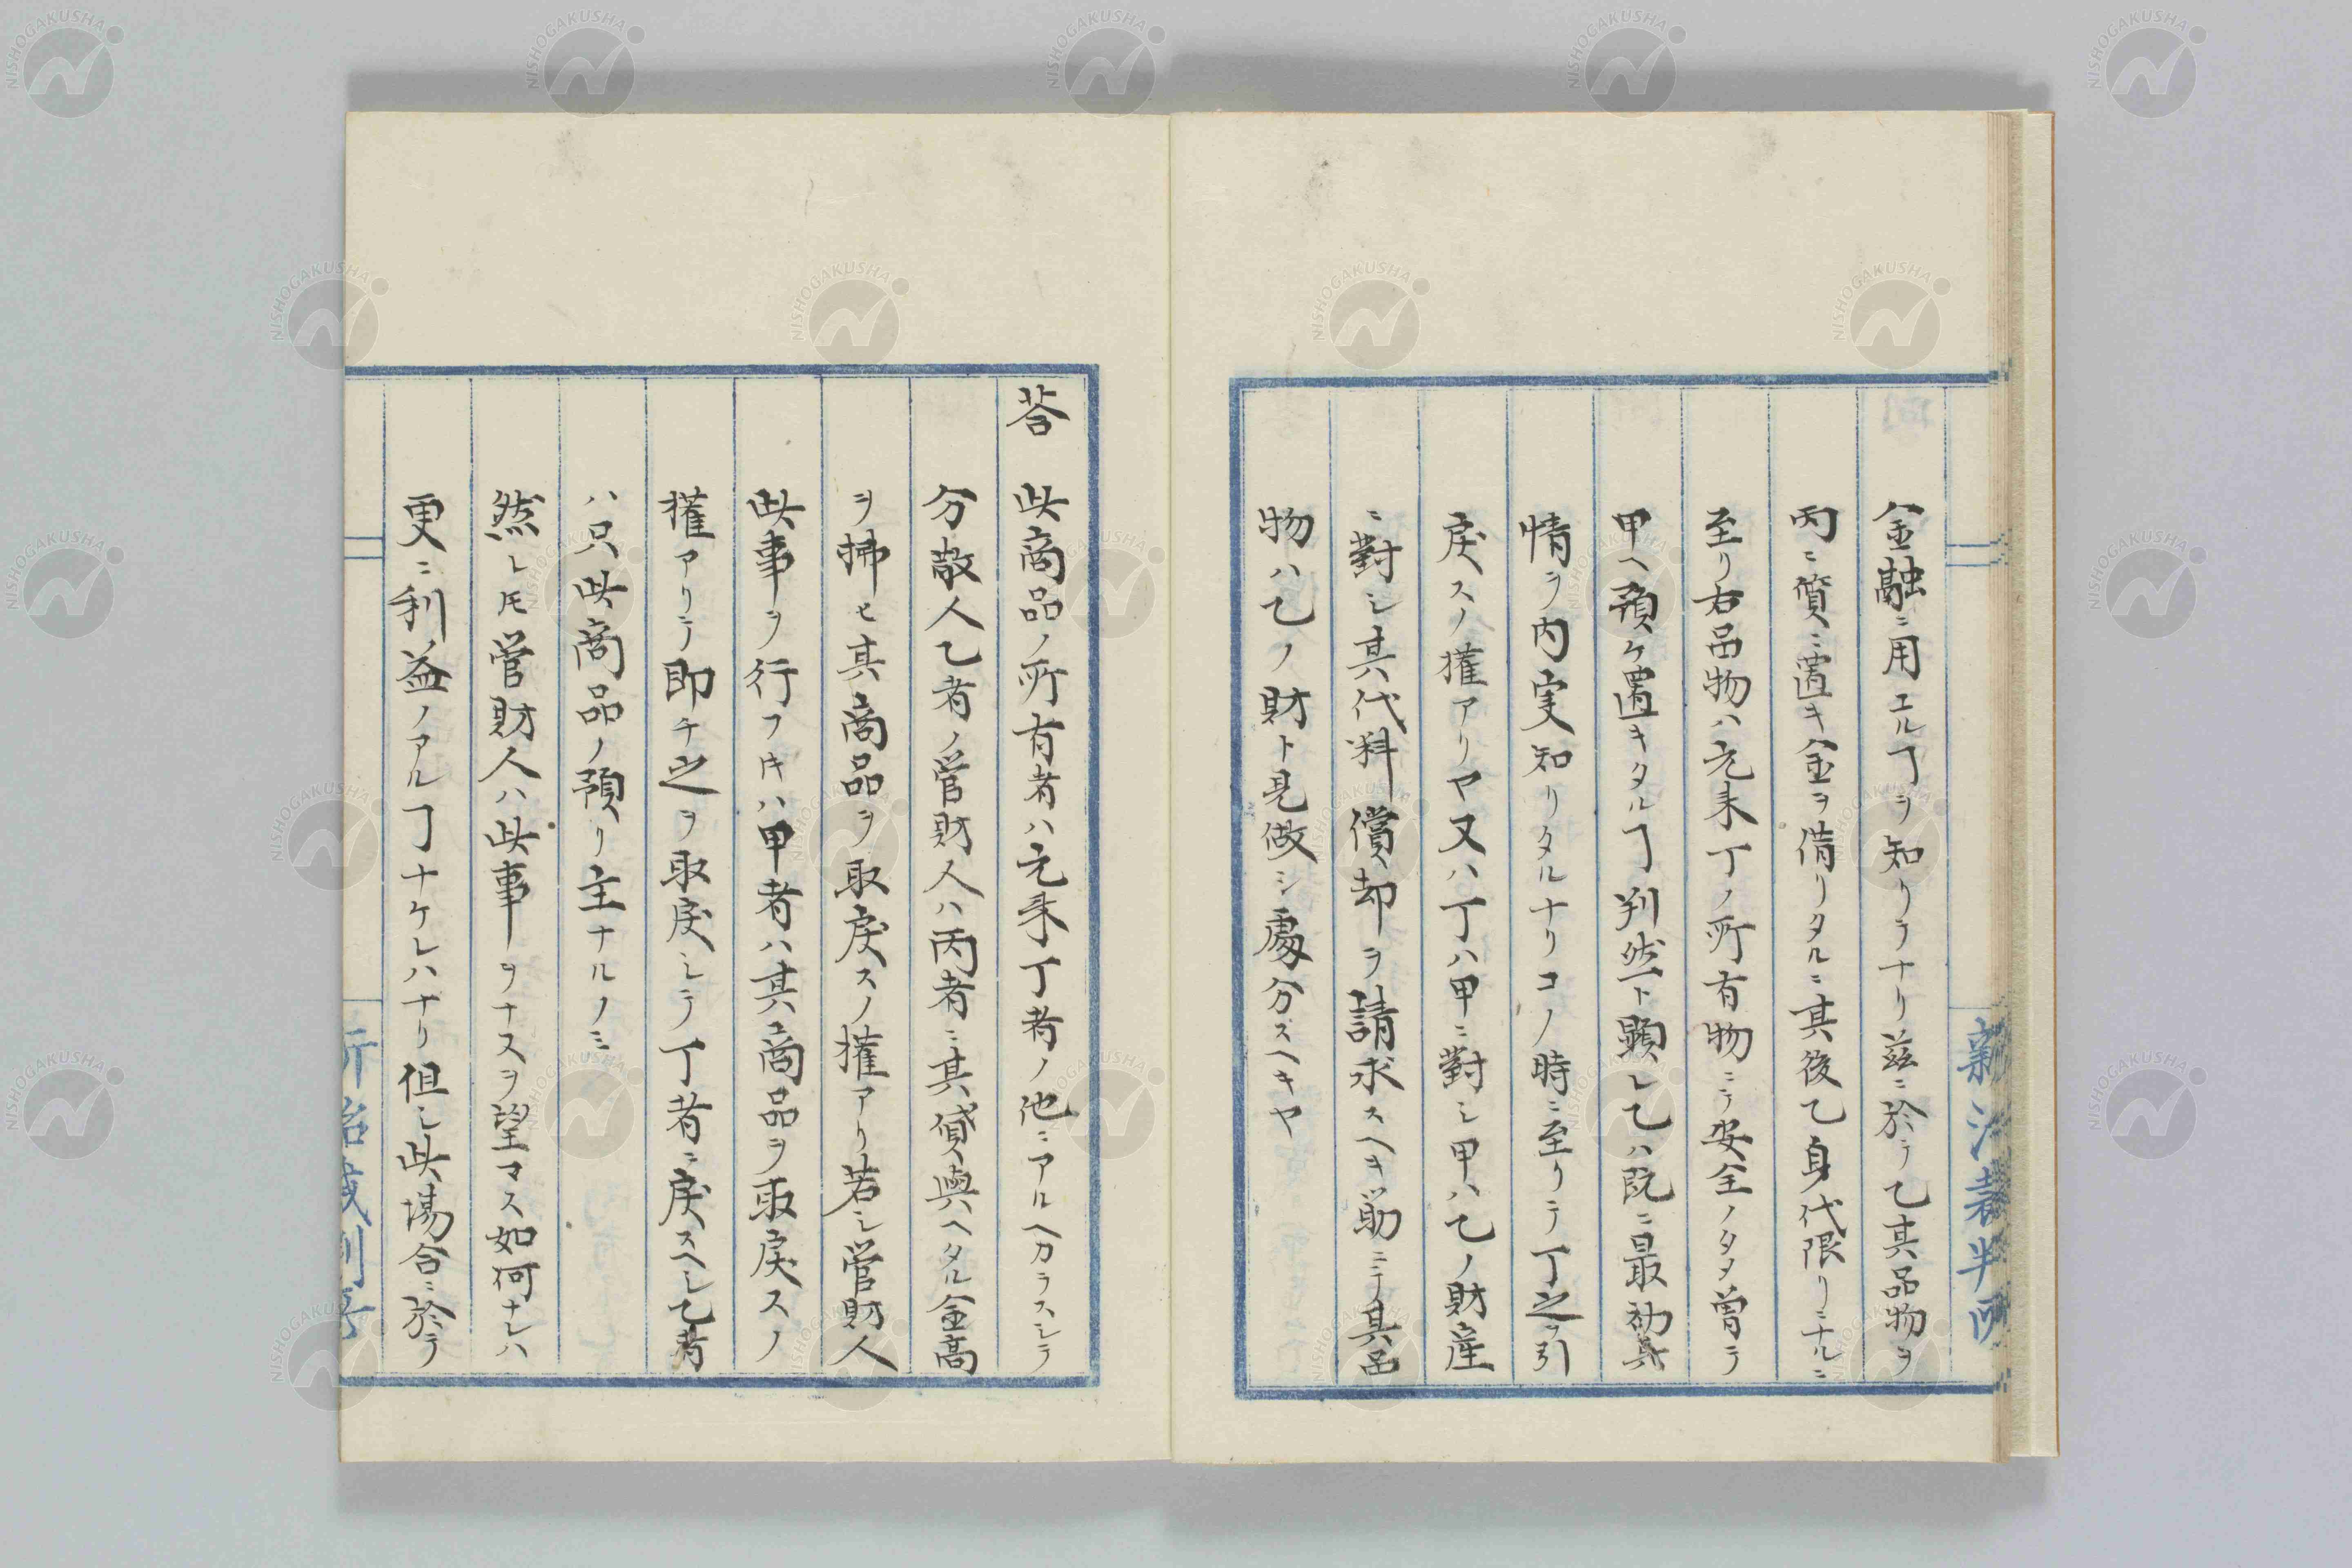 金融ニ用ユルヿヲ知リテナリ茲ニ於テ乙其品物ヲ
丙ニ質ニ置キ金ヲ借リタルニ其後乙身代限リニナルニ
至リ右品物ハ元来丁ノ所有物ニテ安全ノタメ曽テ
甲ヘ預ケ置キタルヿ判然ト顕レ乙ハ既ニ最初其
情ヲ内実知リタルナリコノ時ニ至リテ丁之ヲ引
戻スノ權アリヤ又ハ丁ハ甲ニ對シ甲ハ乙ノ財産
ニ對シ其代料償却ヲ請求スヘキ筋ニテ其品
物ハ乙ノ財ト見做シ處分スヘキヤ
新治裁判所
答 此商品ノ所有者ハ元来丁者ノ他ニアルヘカラスシテ
分散人乙者ノ管財人ハ丙者ニ其貸與ヘタル金高
ヲ拂ヒ其商品ヲ取戻スノ權アリ若シ管財人
此事ヲ行フ𪜈ハ甲者ハ其商品ヲ取戻スノ
權アリテ即チ之ヲ取戻シテ丁者ニ戻スヘシ乙者
ハ只此商品ノ預リ主ナルノミ
然レ𪜈管財人ハ此事ヲナスヲ望マス如何ナレハ
更ニ利益ノアルヿナケレハナリ但シ此場合ニ於テ
新治裁判所
NISHOGAKUSHA